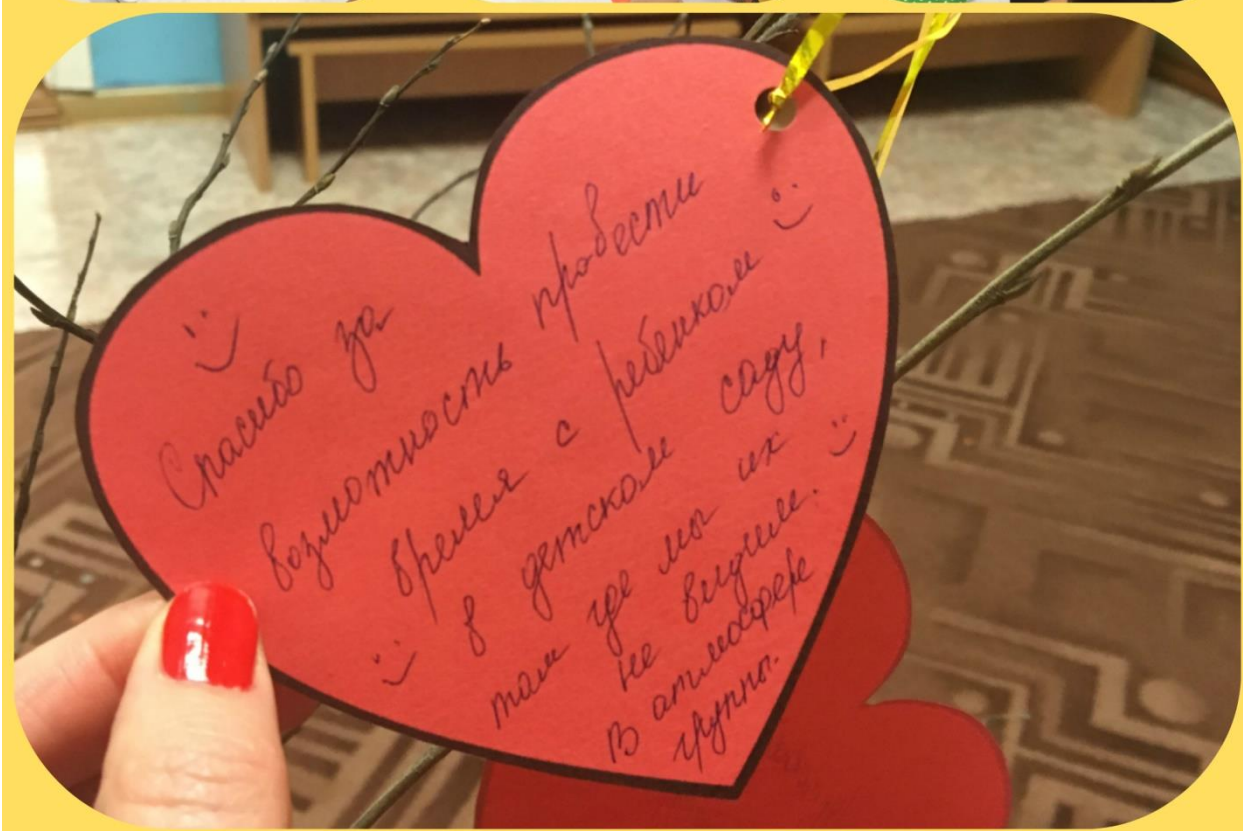 Спасибо за
возможность провести
время с ребенком
в детском саду,
там где мы их
не видим.
В атмосфере
группы.